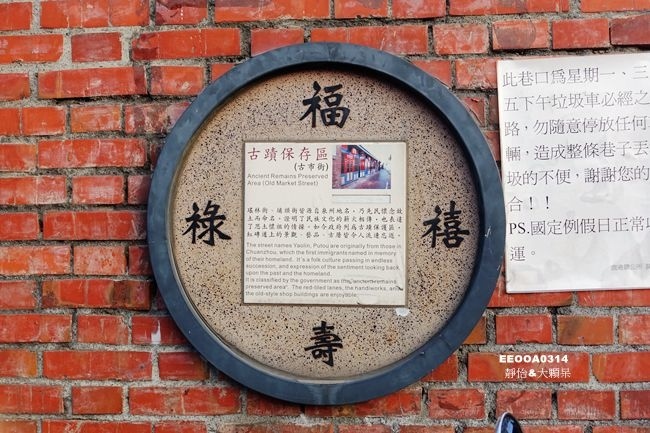 福
祿
禧
壽
古蹟保存區
(古市街)
Ancient Remains Preserved
Area (Old Market Street)
瑤林街、埔頭街皆源自泉州地名，乃先民懷念故
土而命名，證明了民族文化的薪火相傳，也表達
了思土懷祖的情操。如今政府列為古蹟保護區，
紅磚道上的景觀、藝品、古厝皆令人流連忘返。
The street names Yaolin, Putou are originally from those in
Chuanzhou, which the first immigrants named in memory
of their homeland. It's a folk culture passing in endless
succession, and expression of the sentiment looking back
upon the past and the homeland.
It is classified by the government as the "ancient remains
preserved area". The red-tiled lanes, the handiworks, and
the old-style shop buildings are enjoyable.
此巷口為星期一、三
五下午垃圾車必經之
路，勿隨意停放任何
輛，造成整條巷子丟
圾的不便，謝謝您的
合！！
PS.國定例假日正常收
運。
EEOOA0314
靜怡&大顆呆